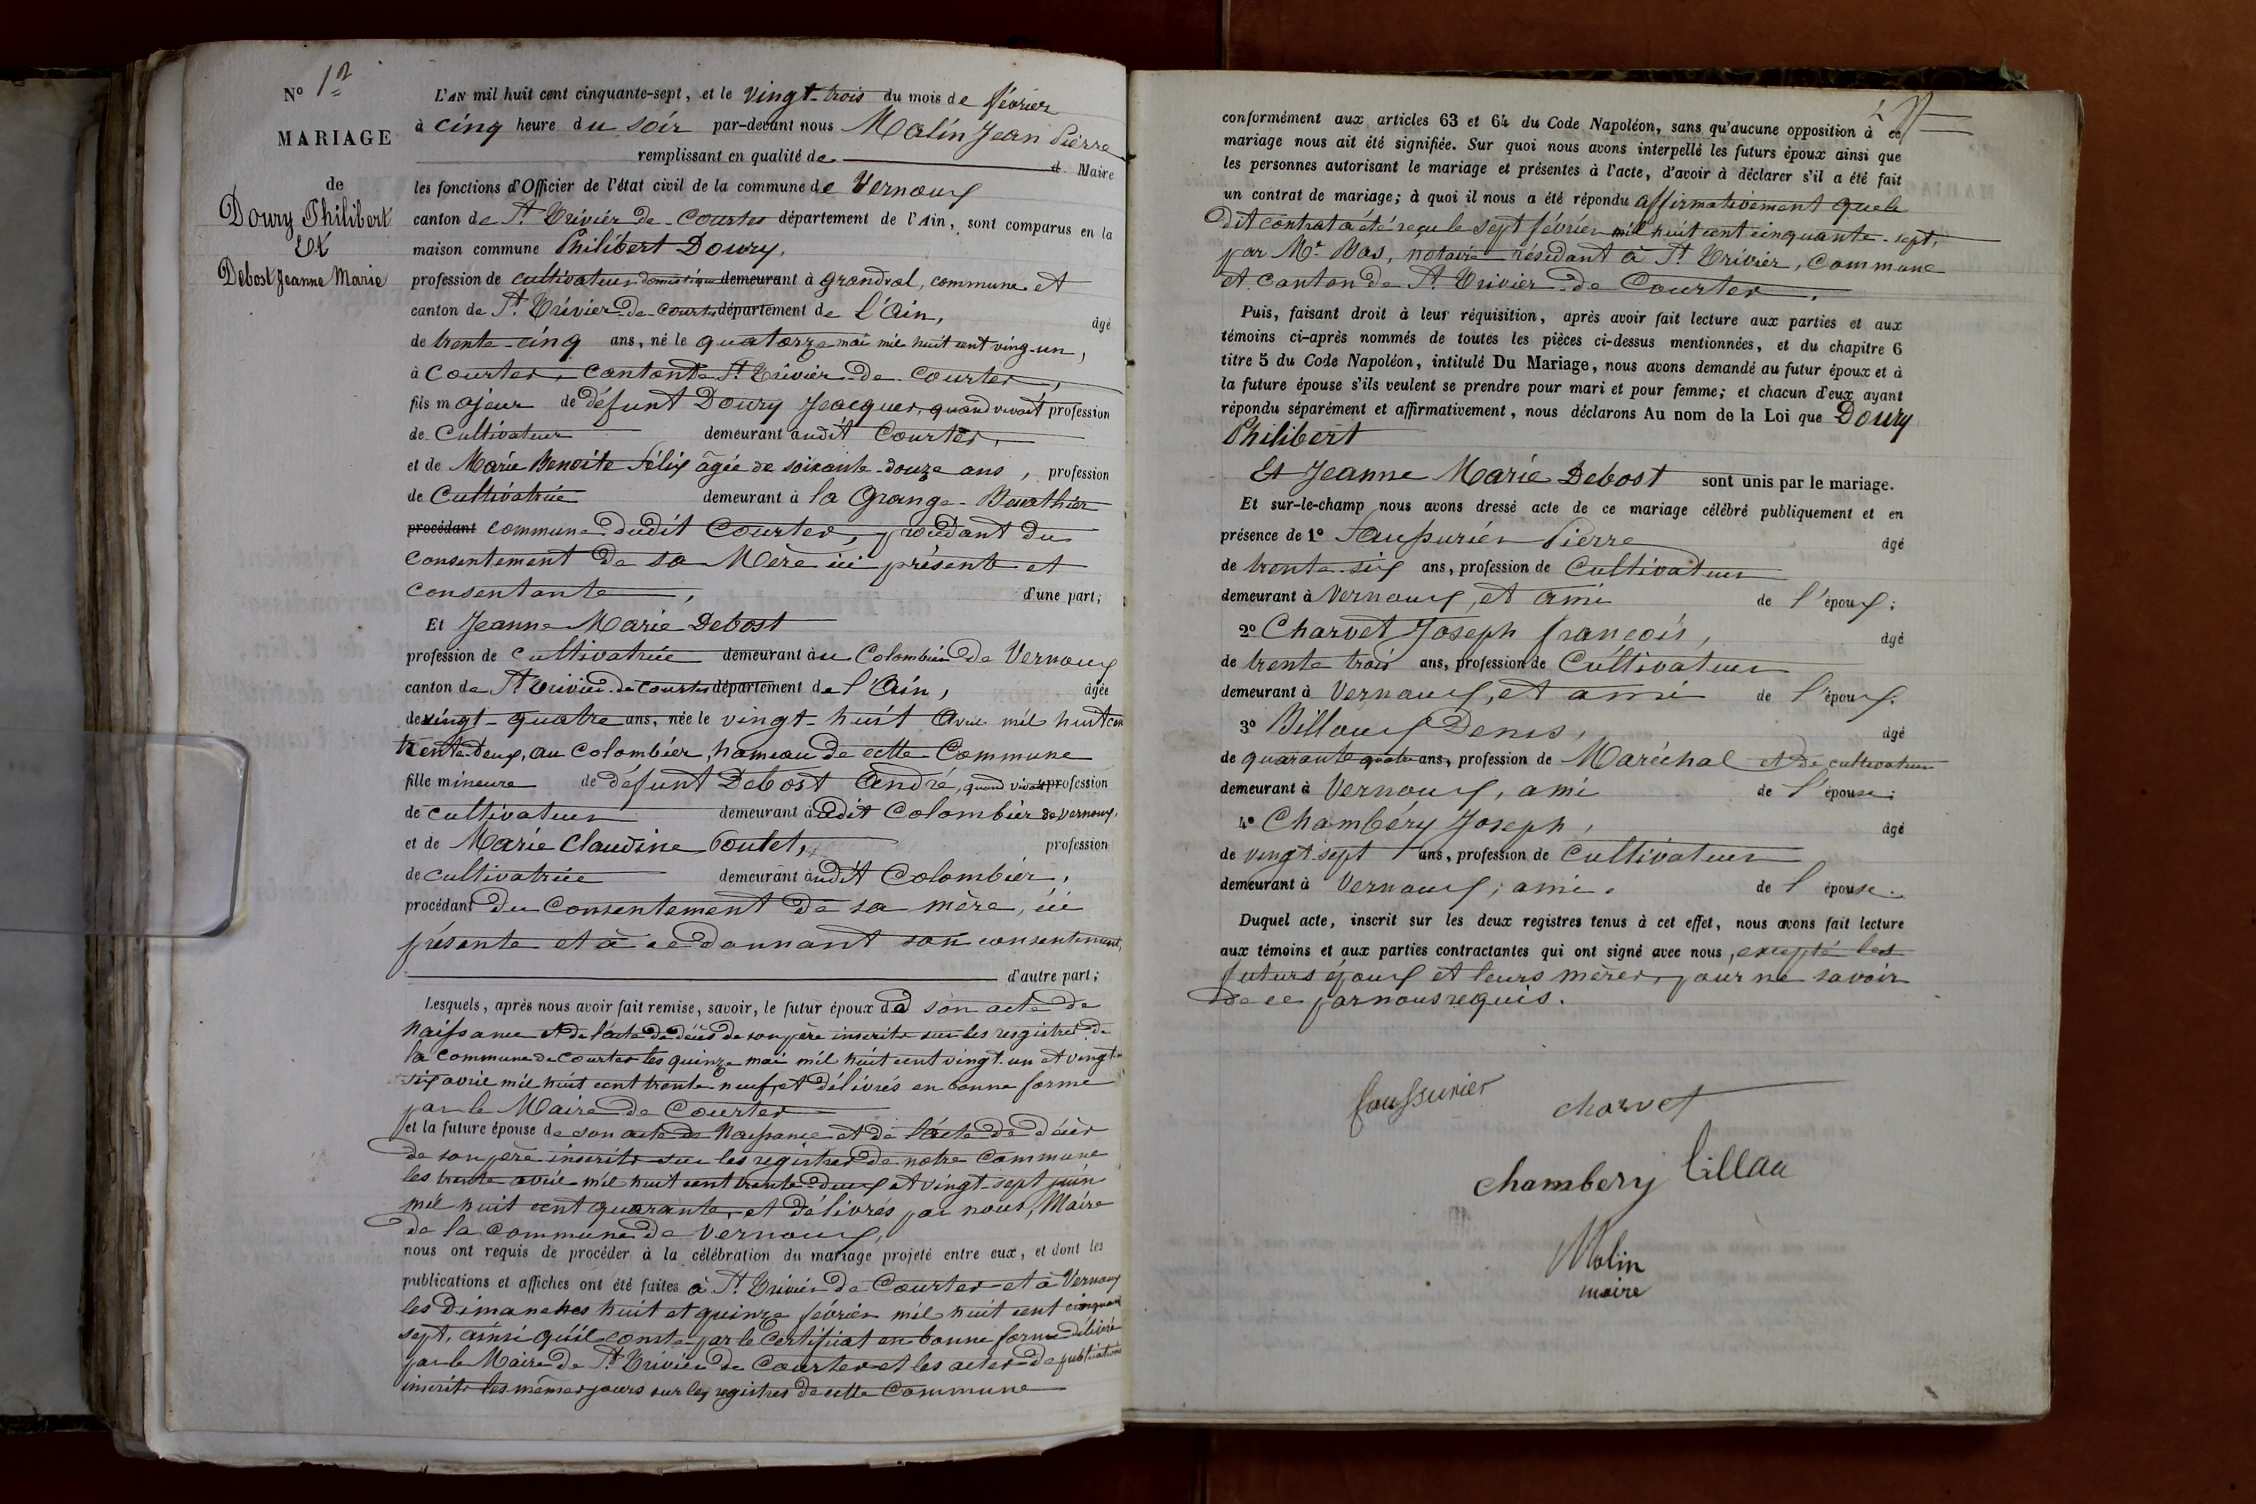 N° 12
MARIAGE
de
Doury Philibert
Et
Debost Jeanne Marie
L'AN mil huit cent cinquante-sept, et le vingt-trois du mois de février
à cinq heure du soir par-devant nous Molin Jean Pierre
remplissant en qualité de Maire
les fonctions d'Officier de l'état civil de la commune de Vernoux
canton de St Trivier de Courtes département de l'Ain, sont comparus en la
maison commune Philibert Doury,
profession de cultivateur domestique demeurant à grandval, commune et
canton de St Trivier de Courtes département de l'Ain, âgé
de trente-cinq ans, né le quatorze mai mil huit cent ving-un,
à Courtes, Canton de St Trivier de Courtes,
fils majeur de défunt Doury Jacques, quand vivait profession
de Cultivateur demeurant audit Courtes,
et de Marie Benoite Félix âgée de soixante-douze ans, profession
de Cultivatrice demeurant à la Grange-
procédant commune dudit Courtes, procédant du
consentement de sa Mère ici présente et
consentante, d'une part;
Et Jeanne Marie Debost
profession de cultivatrice demeurant au Colombier de Vernoux
canton de St Trivier de Courtes département de l'Ain, âgée
de vingt-quatre ans, née le vingt-huit Avril mil huit cent
trente deux, au Colombier, hameau de cette Commune
fille mineure de défunt Debost André, quand vivait profession
de cultivateur demeurant àudit Colombier de Vernoux,
et de Marie Claudine Poulet, profession
de cultivatrice demeurant àudit Colombier,
procédant du Consentement de sa mère, ici
présente et à ce donnant son consentement,
d'autre part;
Lesquels, après nous avoir fait remise, savoir, le futur époux de son acte de
Naissance et de l'acte de décès de son père inscrits sur les registres de
la commune de Courtes les quinze mai mil huit cent vingt-un et vingt-
six avril mil huit cent trente neuf, et délivrés en bonne forme
par le Maire de Courtes
et la future épouse de son acte de Naissance et de l'acte de décès
de son père inscrits sur les registres de notre Commune
les trente avril mil huit cent trente-deux et vingt-sept juin
mil huit cent quarante, et délivrés par nous, Maire
de la commune de Vernoux,
nous ont requis de procéder à la célébration du mariage projeté entre eux, et dont les
publications et affiches ont été faites à St Trivier de Courtes et à Vernoux
les Dimanches huit et quinze février mil huit cent cinquante
sept, ainsi qu'il conste par le Certificat en bonne forme délivré
par le Maire de St Trivier de Courtes et les actes de publications
inscrits les mêmes jours sur les registres de cette Commune
conformément aux articles 63 et 64 du Code Napoléon, sans qu'aucune opposition à ce
mariage nous ait été signifiée. Sur quoi nous avons interpellé les futurs époux ainsi que
les personnes autorisant le mariage et présentes à l'acte, d'avoir à déclarer s'il a été fait
un contrat de mariage; à quoi il nous a été répondu affirmativement que le
dit contrat a été reçu le sept février mil huit cent cinquante-sept,
par Me Bas, notaire résidant à St Trivier, Commune
et Canton de St Trivier de Courtes.
Puis, faisant droit à leur réquisition, après avoir fait lecture aux parties et aux
témoins ci-après nommés de toutes les pièces ci-dessus mentionnées, et du chapitre 6
titre 5 du Code Napoléon, intitulé Du Mariage, nous avons demandé au futur époux et à
la future épouse s'ils veulent se prendre pour mari et pour femme; et chacun d'eux ayant
répondu séparément et affirmativement, nous déclarons Au nom de la Loi que Doury
Philibert
Et Jeanne Marie Debost sont unis par le mariage.
Et sur-le-champ nous avons dressé acte de ce mariage célébré publiquement et en
présence de 1° Faussurier Pierre âgé
de trente-six ans, profession de Cultivateur
demeurant à Vernoux, et ami de l'époux;
2° Charvet Joseph françois, âgé
de trente trois ans, profession de Cultivateur
demeurant à Vernoux, et ami de l'époux;
3° Billoux Denis, âgé
de quarante quatre ans, profession de Maréchal et de cultivateur
demeurant à Vernoux, ami de l'épouse;
4° Chambéry Joseph, âgé
de vingt sept ans, profession de Cultivateur
demeurant à Vernoux, ami. de l'épouse.
Duquel acte, inscrit sur les deux registres tenus à cet effet, nous avons fait lecture
aux témoins et aux parties contractantes qui ont signé avec nous, excepté les
futurs époux et leurs mères, pour ne savoir
de ce par nous requis.
faussurier
charvet
chambery
billau
Molin
maire